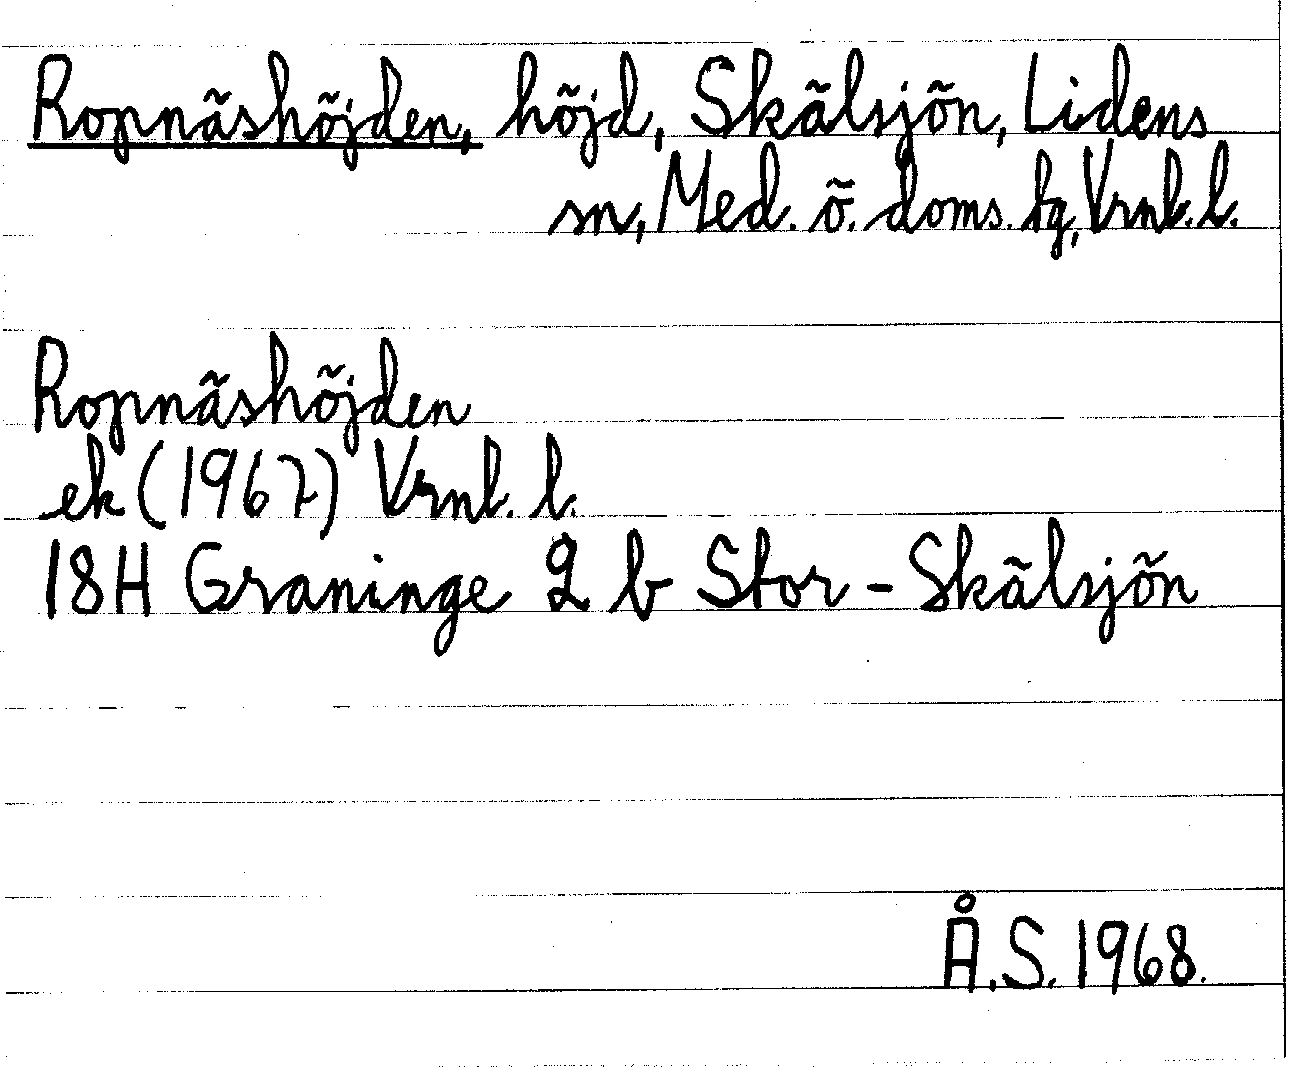 Ropnäshöjden, höjd, Skälsjön, Lidens
sn, Med. ö. doms. tg, Vrnl. l.
Ropnäshöjden
ek (1967) Vrnl. l.
18H Graninge 2 b Stor-Skälsjön
Å.S. 1968.